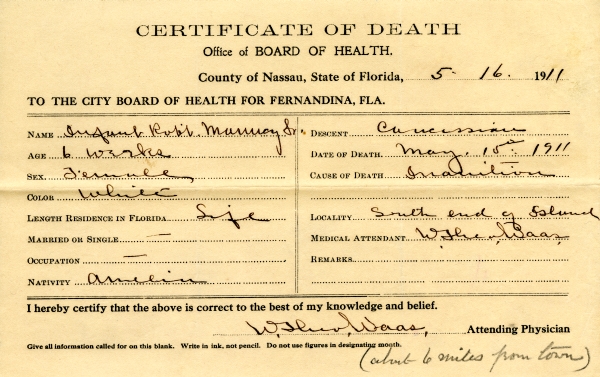 CERTIFICATE OF DEATH
Office of BOARD OF HEALTH.
County of Nassau, State of Florida, 5 16. 1911
TO THE CITY BOARD OF HEALTH FOR FERNANDINA, FLA.
NAME Infant Robt.
AGE 6 weeks
SEX. Female
COLOR White
LENGTH RESIDENCE IN FLORIDA Life
MARRIED OR SINGLE —
OCCUPATION —
NATIVITY
DESCENT Caucasian
DATE OF DEATH. May. 15th 1911
CAUSE OF DEATH Inanition
LOCALITY South end of Island
MEDICAL ATTENDANT Waas,
REMARKS
I hereby certify that the above is correct to the best of my knowledge and belief.
Waas, Attending Physician
Give all information called for on this blank. Write in ink, not pencil. Do not use figures in designating month.
(about 6 miles from town)